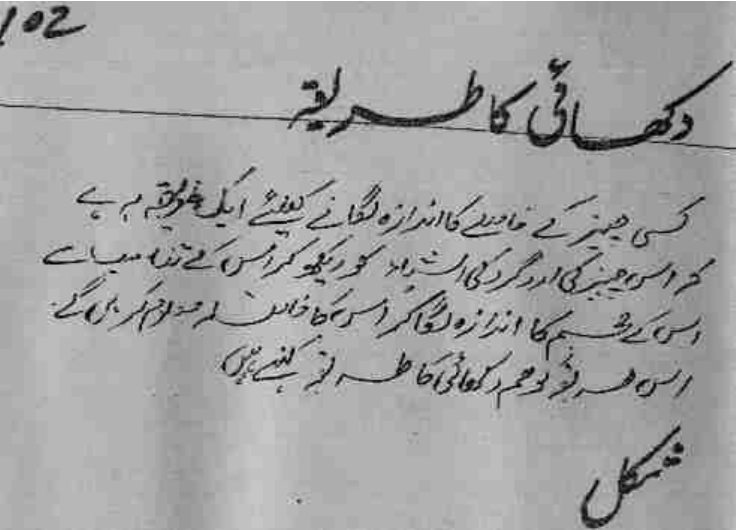 102
دکھائی کا طریقہ
کسی چیز کے فاصلے کا اندازہ لگانے کیلئے ایک طریقہ یہ ہے
کہ اس چیز کی اردگرد کی اشیاء کو دیکھ کر اس کے تناسب سے
اس کے جسم کا اندازہ لگا کر اس کا فاصلہ معلوم کریں گے
اس طریقہ کو ہم دکھائی کا طریقہ کہتے ہیں
شکل